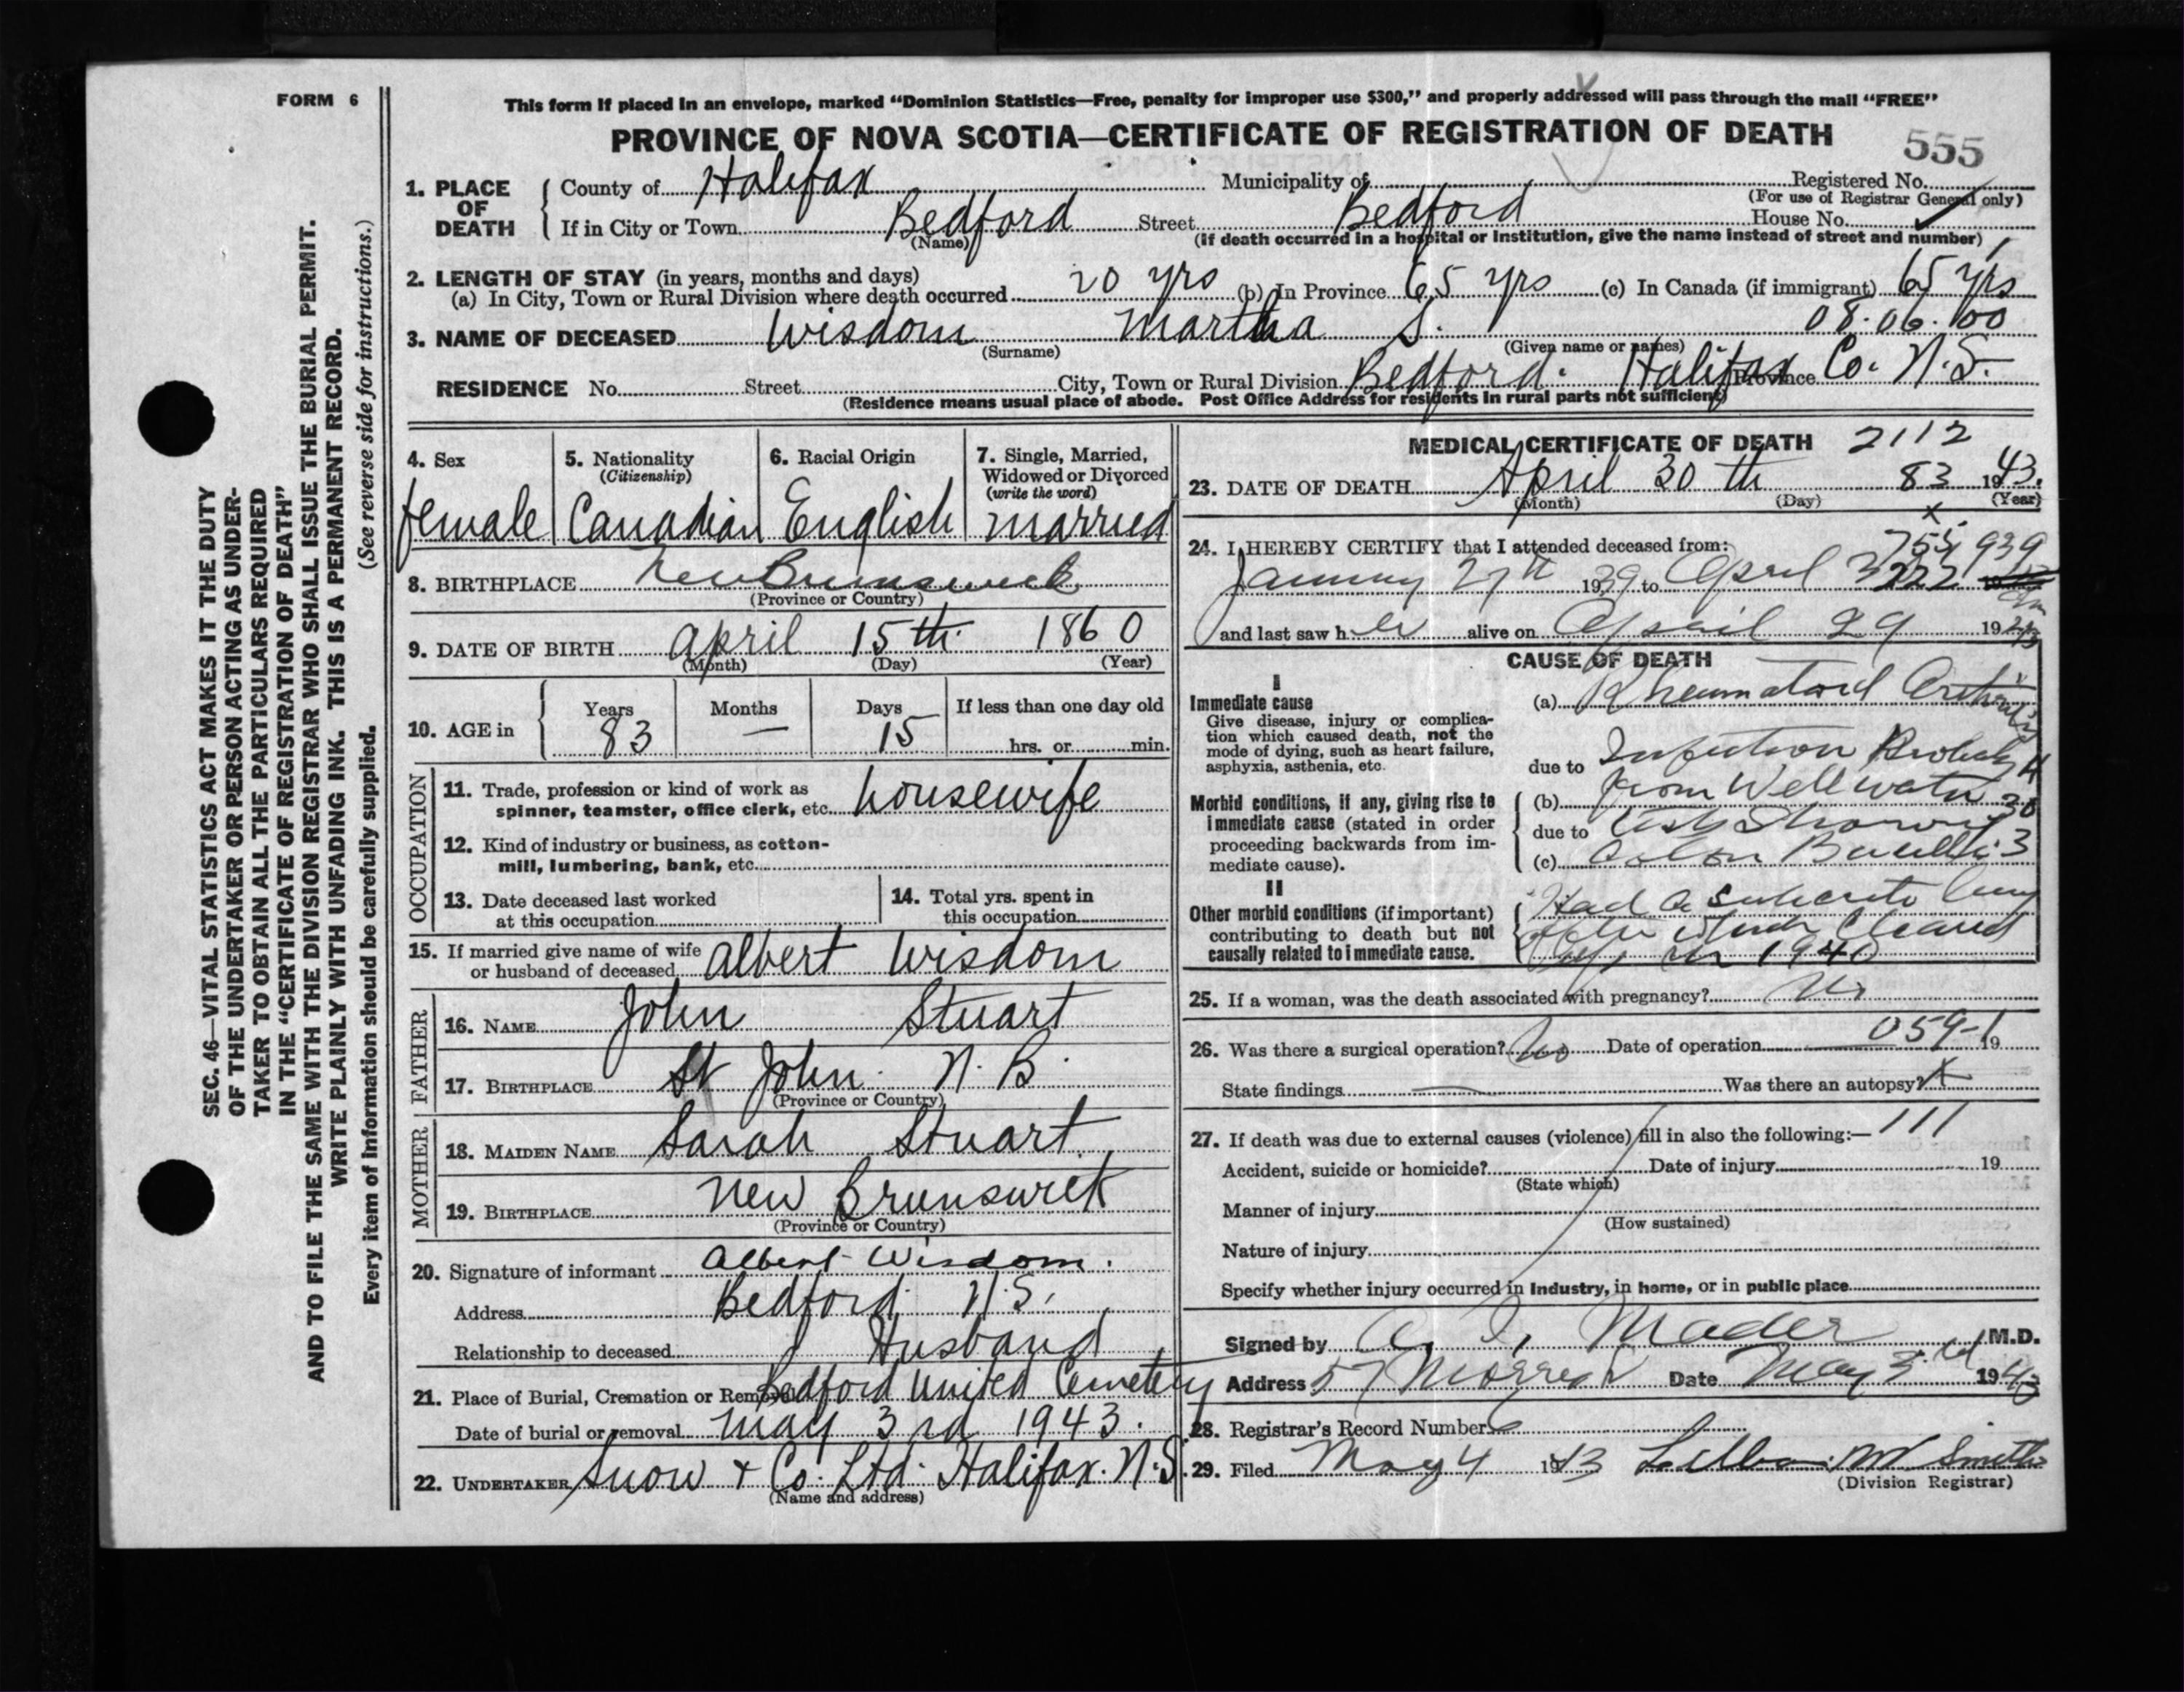 FORM 6
This form if placed in an envelope, marked “Dominion Statistics—Free, penalty for improper use $300,” and properly addressed will pass through the mail “FREE”
PROVINCE OF NOVA SCOTIA—CERTIFICATE OF REGISTRATION OF DEATH
555
1. PLACE OF DEATH
County of Halifax Municipality of Registered No.
(For use of Registrar General only)
If in City or Town Bedford Street Bedford House No.
(Name) (If death occurred in a hospital or institution, give the name instead of street and number)
2. LENGTH OF STAY (in years, months and days)
(a) In City, Town or Rural Division where death occurred 20 yrs (b) In Province 65 yrs (c) In Canada (if immigrant) 65 yrs
08.06.00
3. NAME OF DECEASED Wisdom Martha S.
(Surname) (Given name or names)
RESIDENCE No. Street City, Town or Rural Division Bedford. Halifax Co. N.S. Province
(Residence means usual place of abode. Post Office Address for residents in rural parts not sufficient)
SEC. 46—VITAL STATISTICS ACT MAKES IT THE DUTY
OF THE UNDERTAKER OR PERSON ACTING AS UNDER-
TAKER TO OBTAIN ALL THE PARTICULARS REQUIRED
IN THE “CERTIFICATE OF REGISTRATION OF DEATH”
AND TO FILE THE SAME WITH THE DIVISION REGISTRAR WHO SHALL ISSUE THE BURIAL PERMIT.
WRITE PLAINLY WITH UNFADING INK. THIS IS A PERMANENT RECORD.
Every item of information should be carefully supplied. (See reverse side for instructions.)
4. Sex 5. Nationality (Citizenship) 6. Racial Origin 7. Single, Married, Widowed or Divorced (write the word)
female Canadian English married
8. BIRTHPLACE New Brunswick
(Province or Country)
9. DATE OF BIRTH April 15th 1860
(Month) (Day) (Year)
10. AGE in Years Months Days If less than one day old
83 — 15 hrs. or min.
OCCUPATION
11. Trade, profession or kind of work as
spinner, teamster, office clerk, etc. housewife
12. Kind of industry or business, as cotton-
mill, lumbering, bank, etc.
13. Date deceased last worked
at this occupation
14. Total yrs. spent in
this occupation
15. If married give name of wife
or husband of deceased Albert Wisdom
FATHER
16. NAME John Stuart
17. BIRTHPLACE St John. N.B.
(Province or Country)
MOTHER
18. MAIDEN NAME Sarah Stuart.
19. BIRTHPLACE New Brunswick
(Province or Country)
20. Signature of informant Albert Wisdom.
Address Bedford N.S.
Relationship to deceased Husband
21. Place of Burial, Cremation or Removal Bedford United Cemetery
Date of burial or removal May 3rd 1943.
22. UNDERTAKER Snow & Co. Ltd. Halifax. N.S.
(Name and address)
MEDICAL CERTIFICATE OF DEATH 2112
23. DATE OF DEATH April 30th 83 1943.
(Month) (Day) (Year)
24. I HEREBY CERTIFY that I attended deceased from: 939
January 27th 1939 to April
and last saw her alive on April 29 1943
CAUSE OF DEATH
I
Immediate cause
Give disease, injury or complica-
tion which caused death, not the
mode of dying, such as heart failure,
asphyxia, asthenia, etc.
(a) Rheumatoid Arthritis
due to Infection Probably
Morbid conditions, if any, giving rise to
immediate cause (stated in order
proceeding backwards from im-
mediate cause).
(b) from Well water
due to Showing
(c) Colon Bacilli
II
Other morbid conditions (if important)
contributing to death but not
causally related to immediate cause.
Had a Subacute
which Cleared
up in 1940
25. If a woman, was the death associated with pregnancy? No
26. Was there a surgical operation? No Date of operation 059-1 19
State findings Was there an autopsy?
27. If death was due to external causes (violence) fill in also the following:— 111
Accident, suicide or homicide? Date of injury 19
(State which)
Manner of injury
(How sustained)
Nature of injury
Specify whether injury occurred in industry, in home, or in public place
Signed by A. I. Mader M.D.
Address 57 Morris Date May 3rd 1943
28. Registrar's Record Number
29. Filed May 4 1943 M Smith
(Division Registrar)